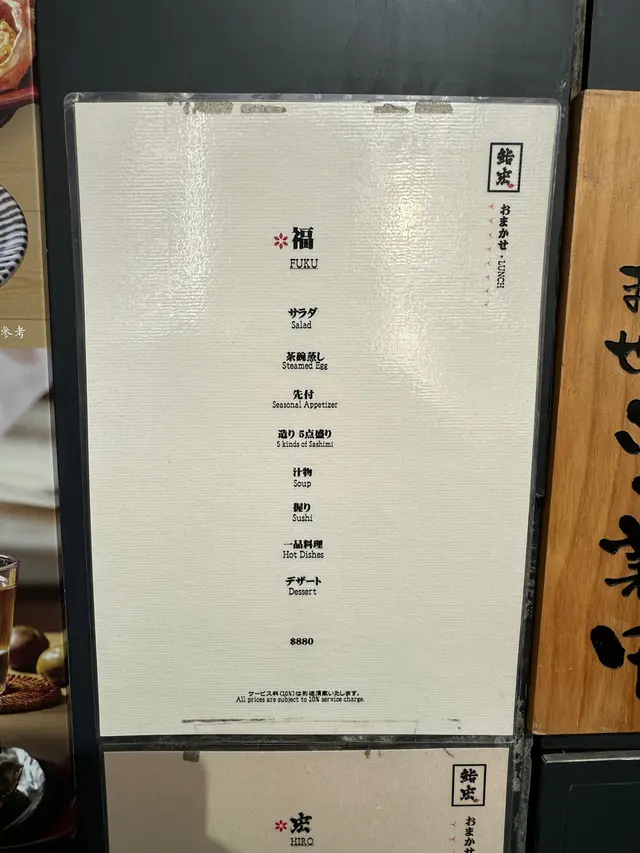 鮨宏
おまかせ・LUNCH
福
FUKU
サラダ
Salad
茶碗蒸し
Steamed Egg
先付
Seasonal Appetizer
造り 5点盛り
5 kinds of Sashimi
汁物
Soup
握り
Sushi
一品料理
Hot Dishes
デザート
Dessert
$880
サービス料(10%)は別途頂戴いたします。
All prices are subject to 10% service charge.
鮨宏
おまかせ
宏
HIRO
参考